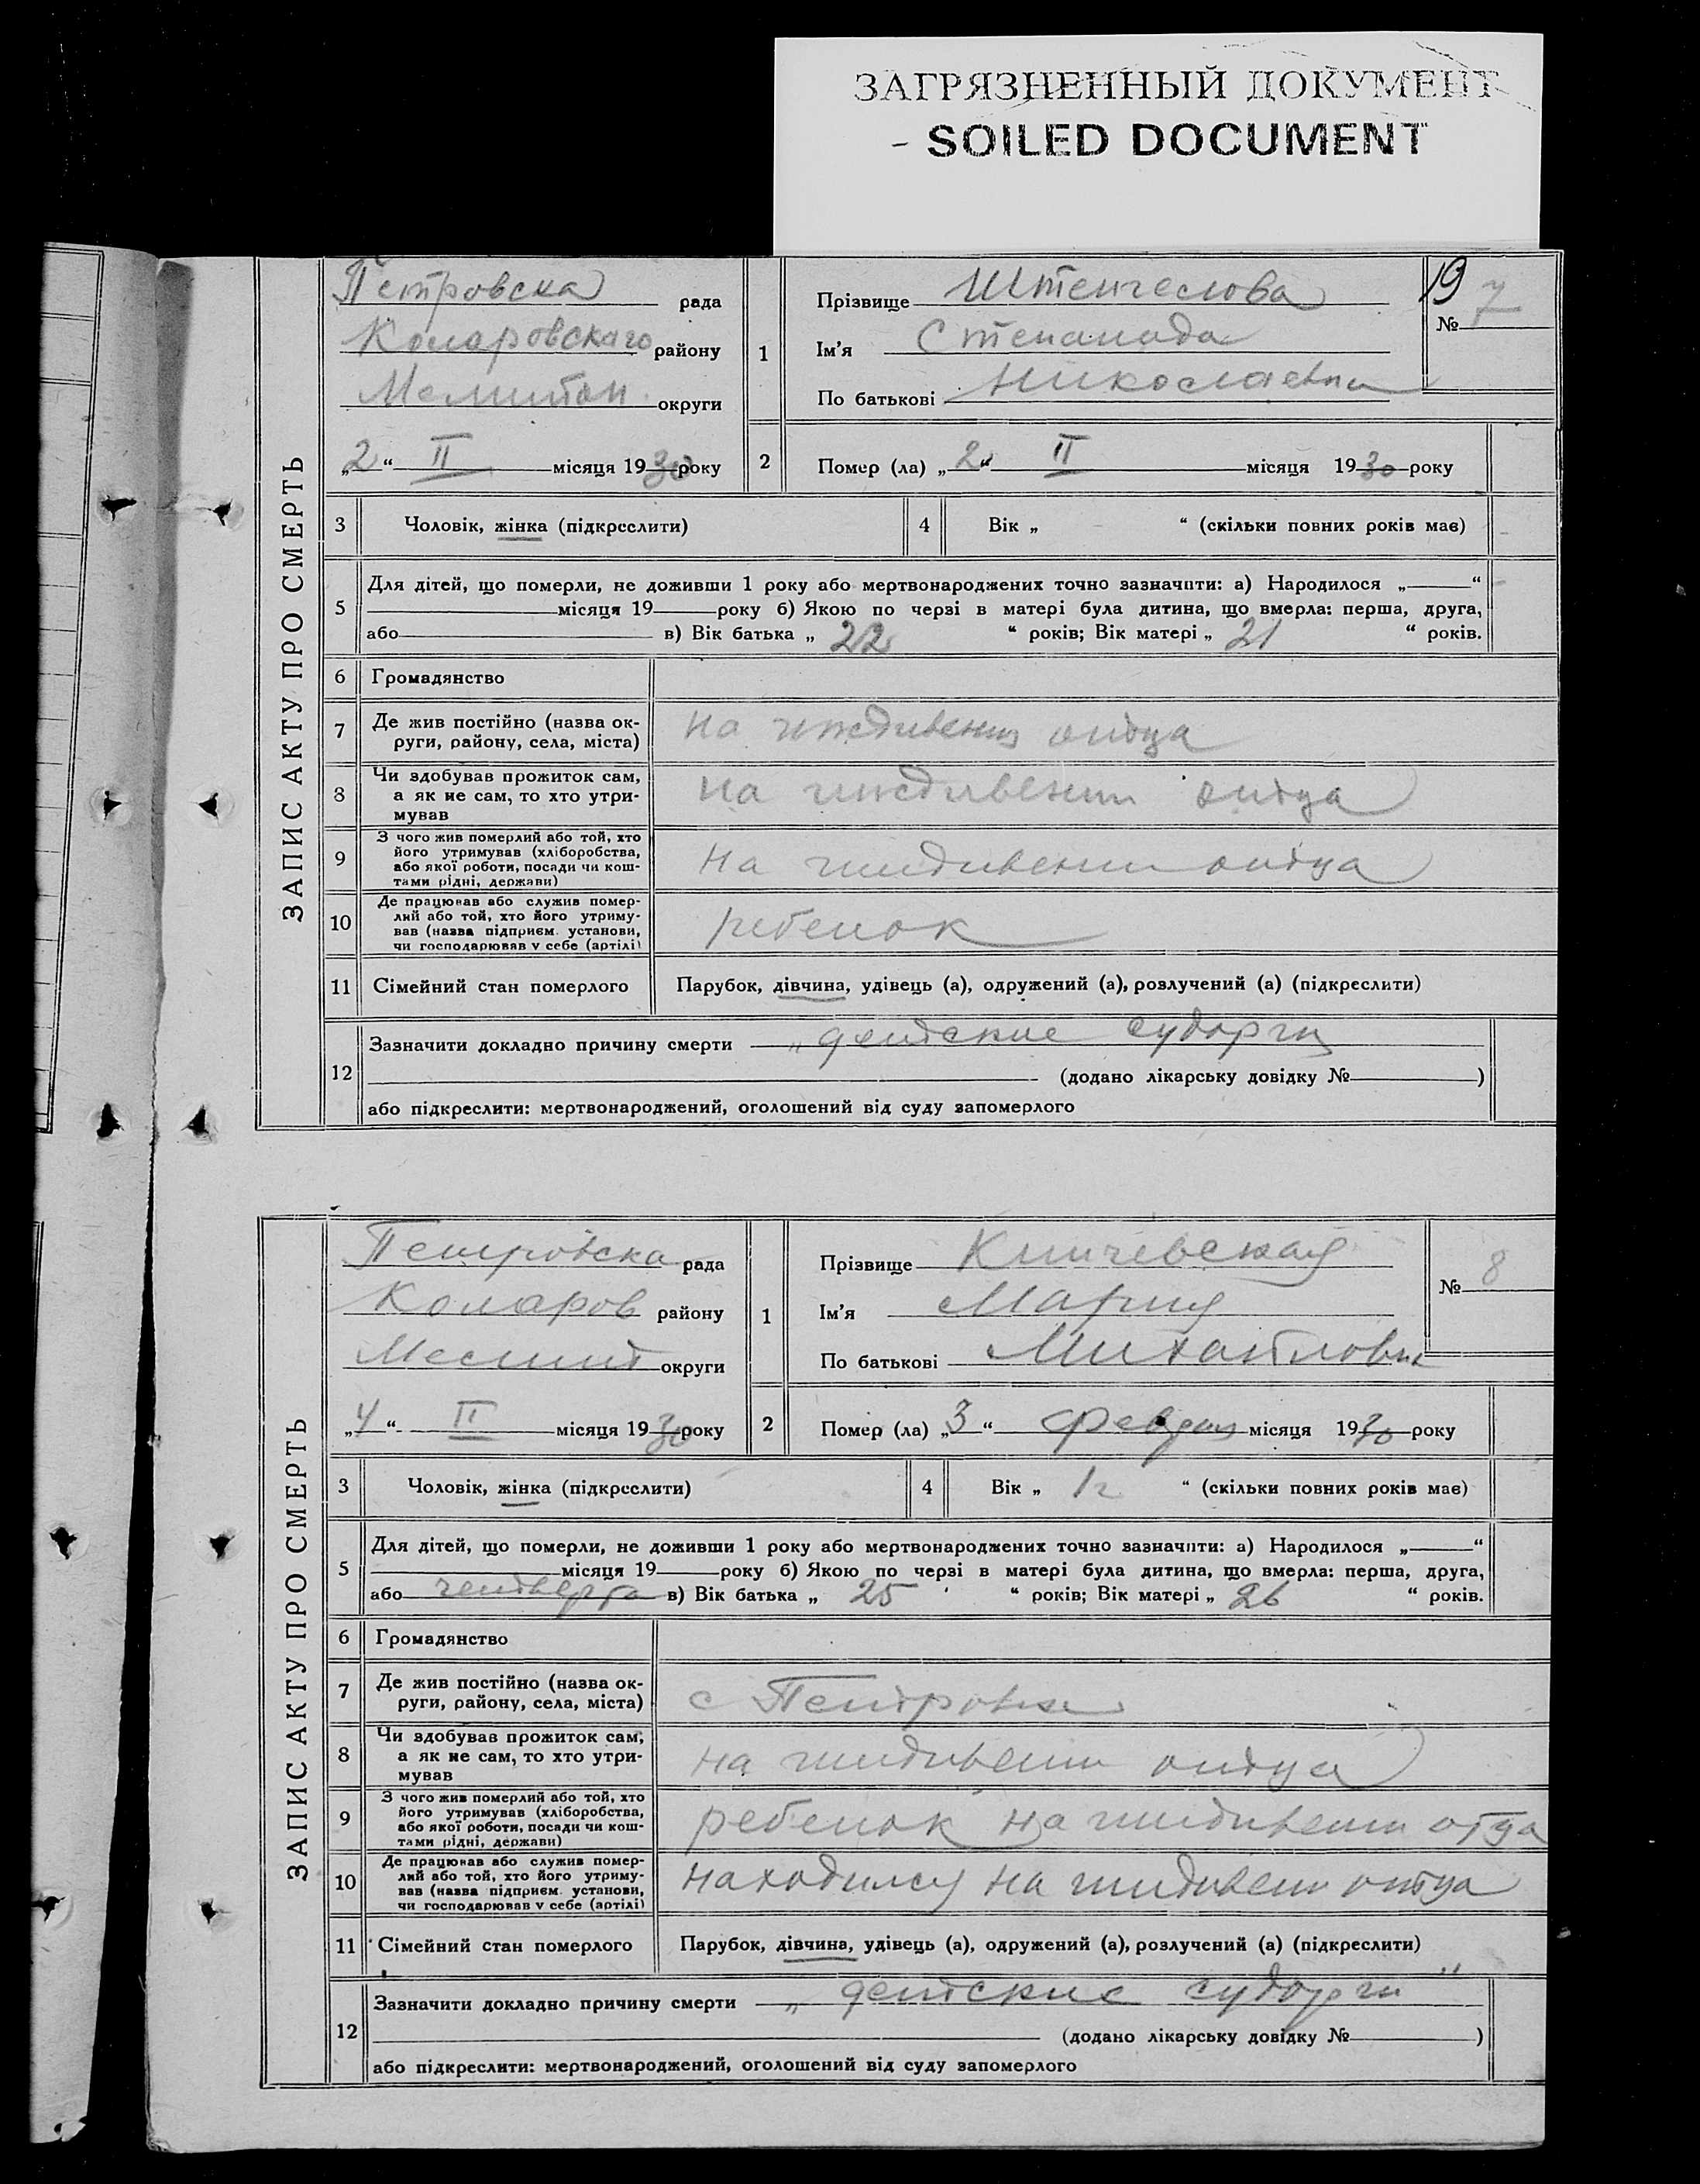 ЗАГРЯЗНЕННЫЙ ДОКУМЕНТ
- SOILED DOCUMENT
ЗАПИС АКТУ ПРО СМЕРТЬ
Петровска рада
Коларовскаго району
Мелитоп. округи
„2“ II місяця 1930 року
1
Прізвище
Ім'я Степанида
По батькові Николаевна
19
№ 7
2 Помер (ла) „2“ II місяця 1930 року
3 Чоловік, жінка (підкреслити)
4 Вік „ “ (скільки повних років має)
5 Для дітей, що померли, не доживши 1 року або мертвонароджених точно зазначити: а) Народилося „ “
місяця 19 року б) Якою по черзі в матері була дитина, що вмерла: перша, друга,
або в) Вік батька „ 22 “ років; Вік матері „ 21 “ років.
6 Громадянство
7 Де жив постійно (назва ок-
руги, району, села, міста)
на иждивении отца
8 Чи здобував прожиток сам,
а як не сам, то хто утри-
мував
на иждивении отца
9 З чого жив померлий або той, хто
його утримував (хліборобства,
або якої роботи, посади чи кош-
тами рідні, держави)
на иждивении отца
10 Де працював або служив помер-
лий або той, хто його утриму-
вав (назва підприєм. установи,
чи господарював у себе (артілі)
ребенок
11 Сімейний стан померлого Парубок, дівчина, удівець (а), одружений (а), розлучений (а) (підкреслити)
12 Зазначити докладно причину смерти „детские судорги
(додано лікарську довідку № )
або підкреслити: мертвонароджений, оголошений від суду запомерлого
ЗАПИС АКТУ ПРО СМЕРТЬ
Петровска рада
Коларов району
Мелит округи
„4“ II місяця 1930 року
1
Прізвище Кличевская
Ім'я Мария
По батькові Михайловна
№ 8
2 Помер (ла) „3“ февраля місяця 1930 року
3 Чоловік, жінка (підкреслити)
4 Вік „ 1 г “ (скільки повних років має)
5 Для дітей, що померли, не доживши 1 року або мертвонароджених точно зазначити: а) Народилося „ “
місяця 19 року б) Якою по черзі в матері була дитина, що вмерла: перша, друга,
або четверта в) Вік батька „ 25 “ років; Вік матері „ 26 “ років.
6 Громадянство
7 Де жив постійно (назва ок-
руги, району, села, міста)
с Петровка
8 Чи здобував прожиток сам,
а як не сам, то хто утри-
мував
на иждивении отца
9 З чого жив померлий або той, хто
його утримував (хліборобства,
або якої роботи, посади чи кош-
тами рідні, держави)
ребенок на иждивении отца
10 Де працював або служив помер-
лий або той, хто його утриму-
вав (назва підприєм. установи,
чи господарював у себе (артілі)
находился на иждивении отца
11 Сімейний стан померлого Парубок, дівчина, удівець (а), одружений (а), розлучений (а) (підкреслити)
12 Зазначити докладно причину смерти „детские судорги“
(додано лікарську довідку № )
або підкреслити: мертвонароджений, оголошений від суду запомерлого